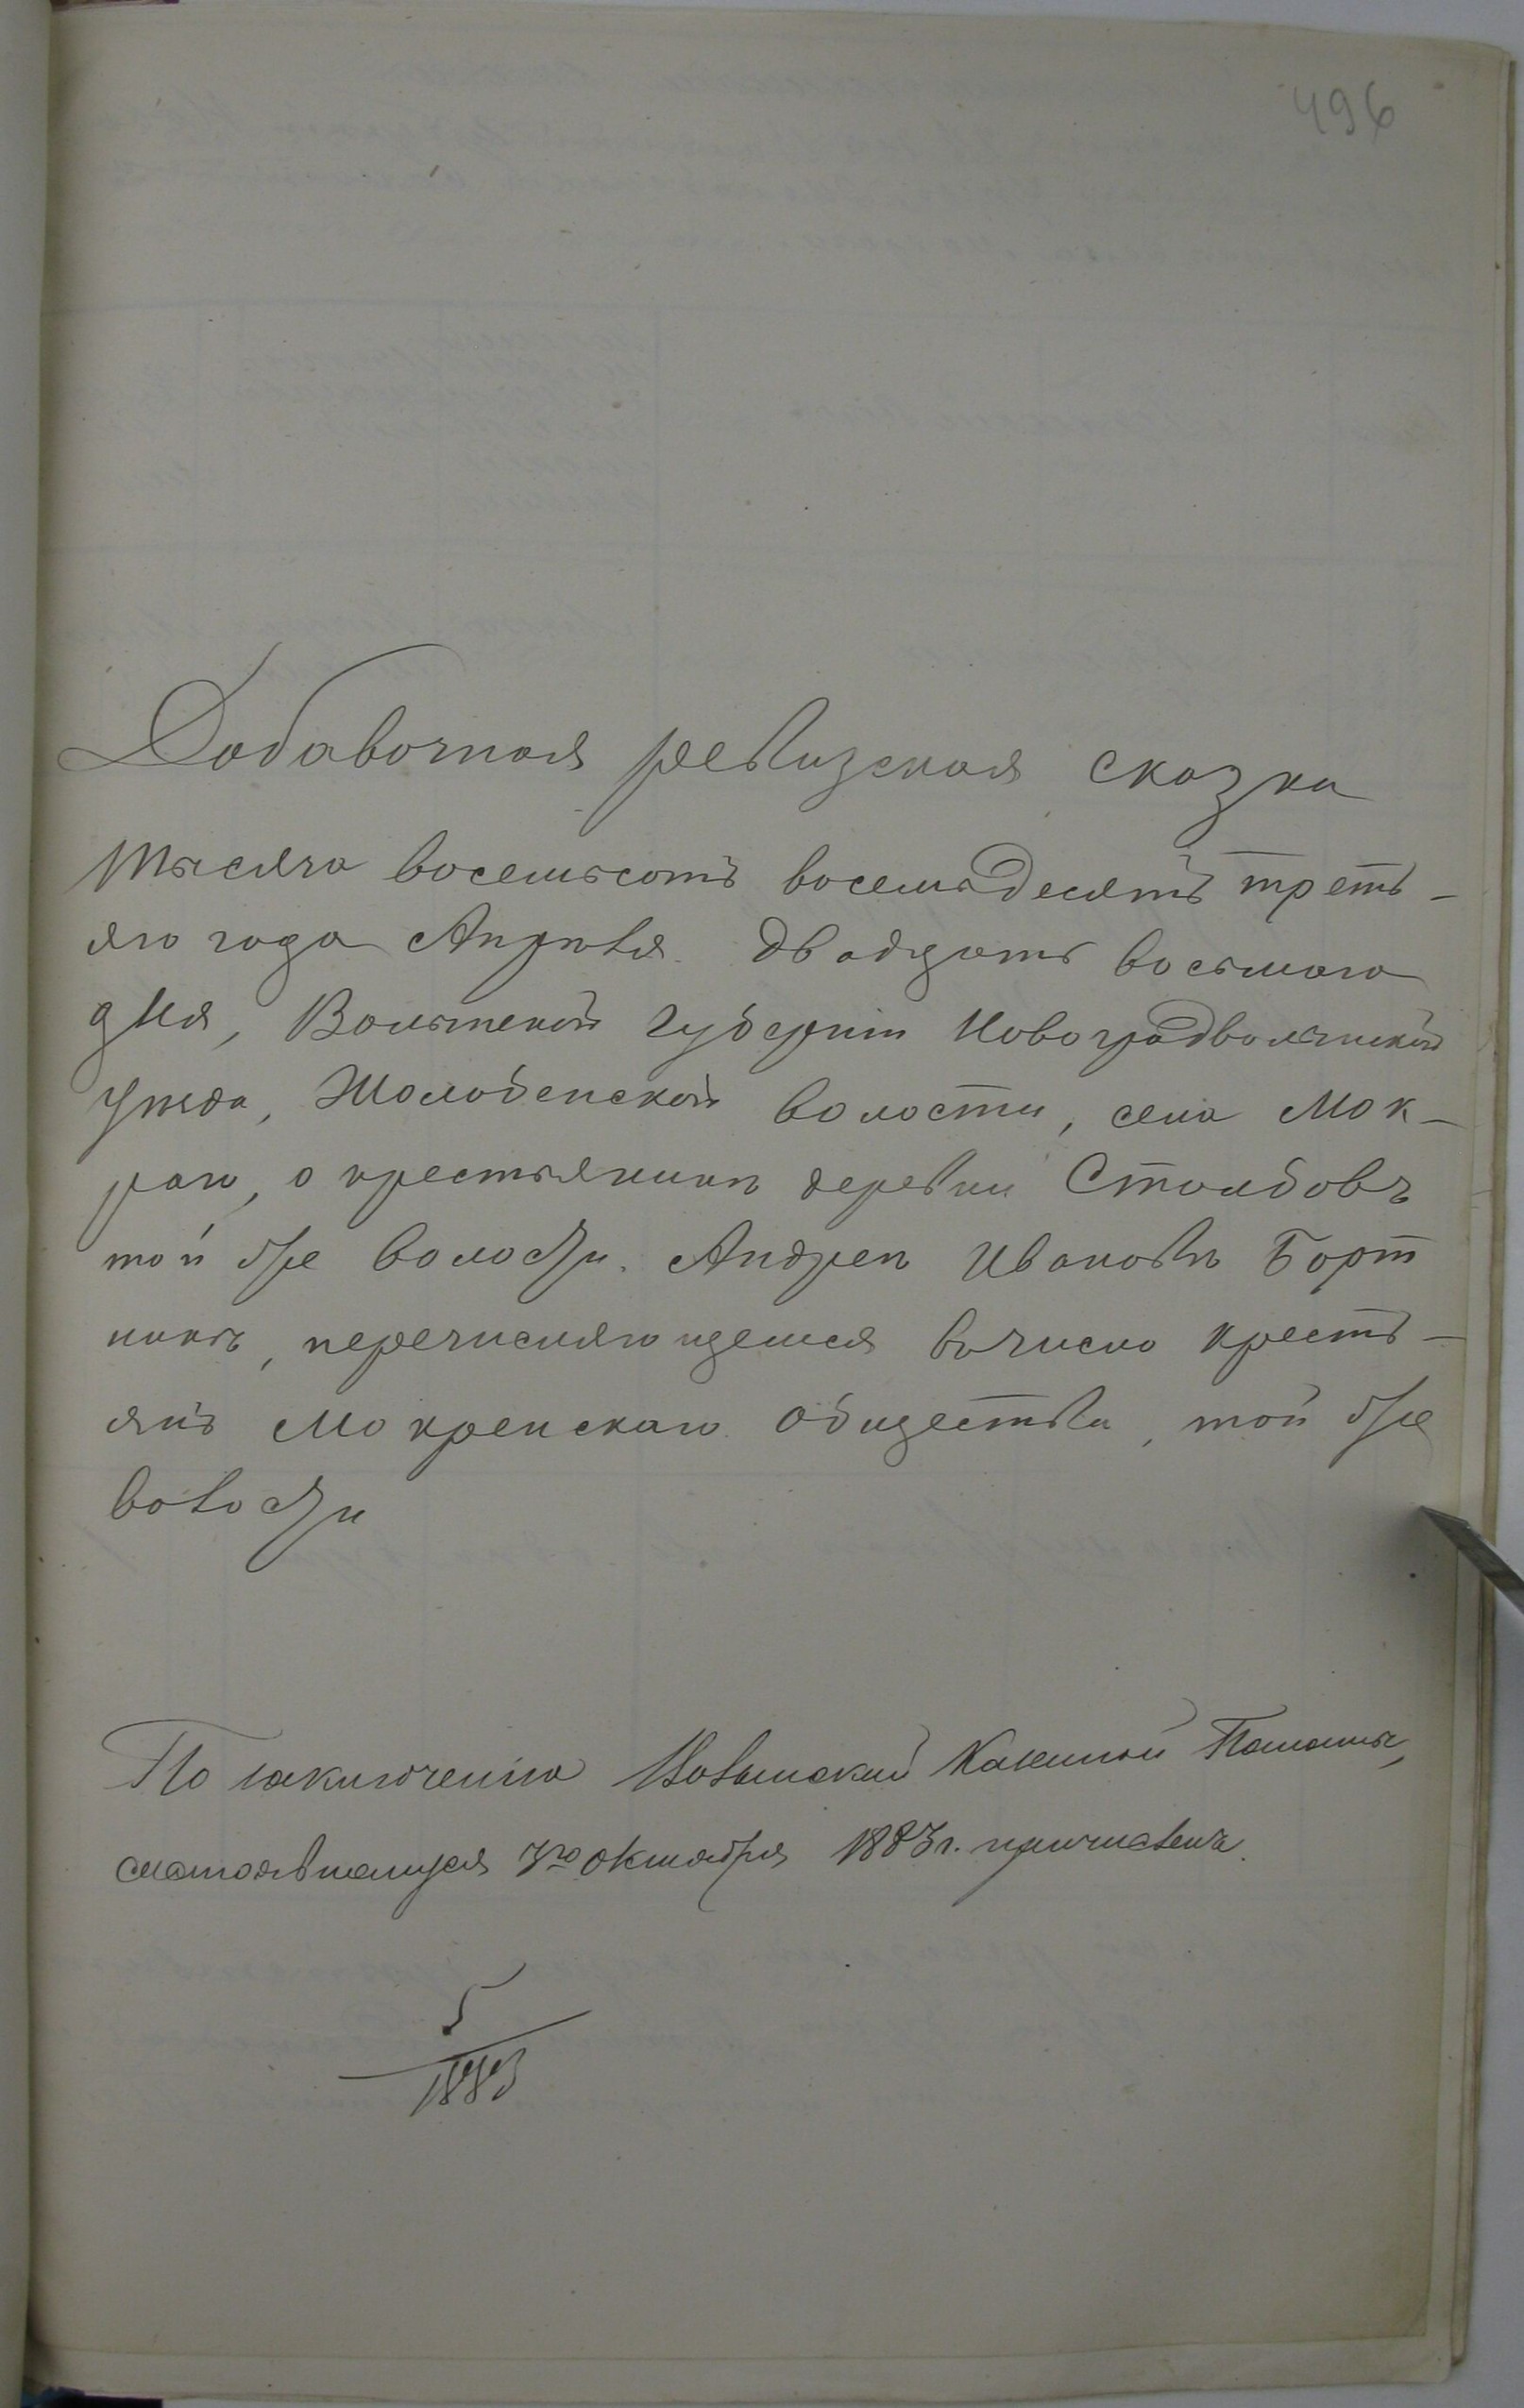 496
Добавочная ревизская сказка
тысяча восемьсотъ восемьдесятъ треть-
яго года Апрѣля двадцать восьмого
дня, Волынской губерніи Новоградволынскаго
уѣзда, Жолобенской волости, села Мок-
раго, о крестьянинѣ деревни Столбовъ
той же волости Андреѣ Ивановѣ Борт
никъ, перечисляющемся въ число кресть-
янъ Мокренскаго общества, той же
волости
По заключенію Волынской Казенной Палаты,
состоявшемуся 3го октября 1883 г. причисленъ.
5
1883